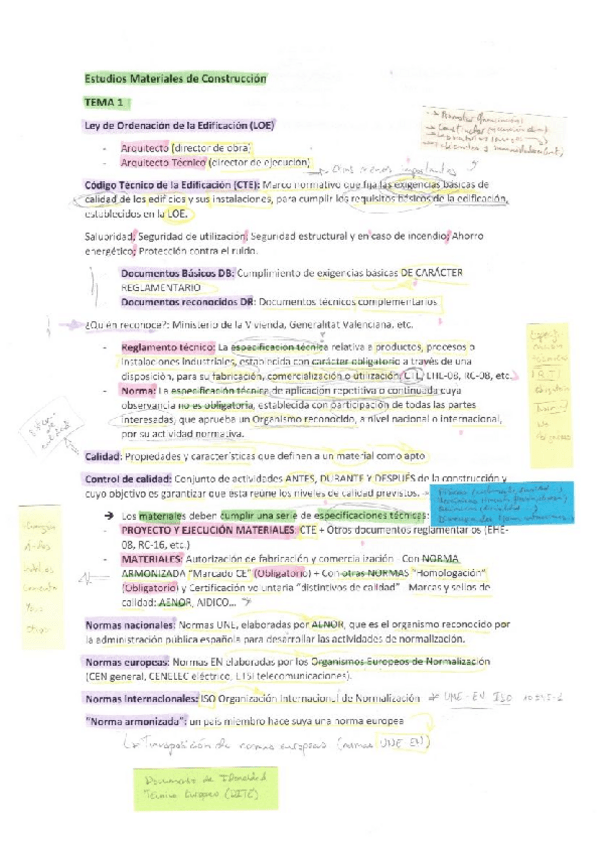 Estudios Materiales de Construcción
TEMA 1
Ley de Ordenación de la Edificación (LOE)
- Arquitecto (director de obra)
- Arquitecto Técnico (director de ejecución)
Otros menos importantes
Código Técnico de la Edificación (CTE): Marco normativo que fija las exigencias básicas de
calidad de los edificios y sus instalaciones, para cumplir los requisitos básicos de la edificación,
establecidos en la LOE.
Salubridad; Seguridad de utilización; Seguridad estructural y en caso de incendio; Ahorro
energético; Protección contra el ruido.
Documentos Básicos DB: Cumplimiento de exigencias básicas DE CARÁCTER
REGLAMENTARIO
Documentos reconocidos DR: Documentos técnicos complementarios
¿Quién reconoce?: Ministerio de la Vivienda, Generalitat Valenciana, etc.
- Reglamento técnico: La especificación técnica relativa a productos, procesos o
instalaciones industriales, establecida con carácter obligatorio a través de una
disposición, para su fabricación, comercialización o utilización. CTE, EHE-08, RC-08, etc.
- Norma: La especificación técnica de aplicación repetitiva o continuada cuya
observancia no es obligatoria, establecida con participación de todas las partes
interesadas, que aprueba un Organismo reconocido, a nivel nacional o internacional,
por su actividad normativa.
Calidad: Propiedades y características que definen a un material como apto
Control de calidad: Conjunto de actividades ANTES, DURANTE Y DESPUÉS de la construcción y
cuyo objetivo es garantizar que esta reúne los niveles de calidad previstos.
➔ Los materiales deben cumplir una serie de especificaciones técnicas:
- PROYECTO Y EJECUCIÓN MATERIALES: CTE + Otros documentos reglamentarios (EHE-
08, RC-16, etc.)
- MATERIALES: Autorización de fabricación y comercialización - Con NORMA
ARMONIZADA "Marcado CE" (Obligatorio) + Con otras NORMAS "Homologación"
(Obligatorio) y Certificación voluntaria "distintivos de calidad" - Marcas y sellos de
calidad: AENOR, AIDICO...
Normas nacionales: Normas UNE, elaboradas por AENOR, que es el organismo reconocido por
la administración pública española para desarrollar las actividades de normalización.
Normas europeas: Normas EN elaboradas por los Organismos Europeos de Normalización
(CEN general, CENELEC eléctrico, ETSI telecomunicaciones).
Normas internacionales: ISO Organización Internacional de Normalización
UNE-EN ISO
"Norma armonizada": un país miembro hace suya una norma europea
Transposición de normas europeas (normas UNE EN)
Documento de Idoneidad
Técnica Europeo (DITE)